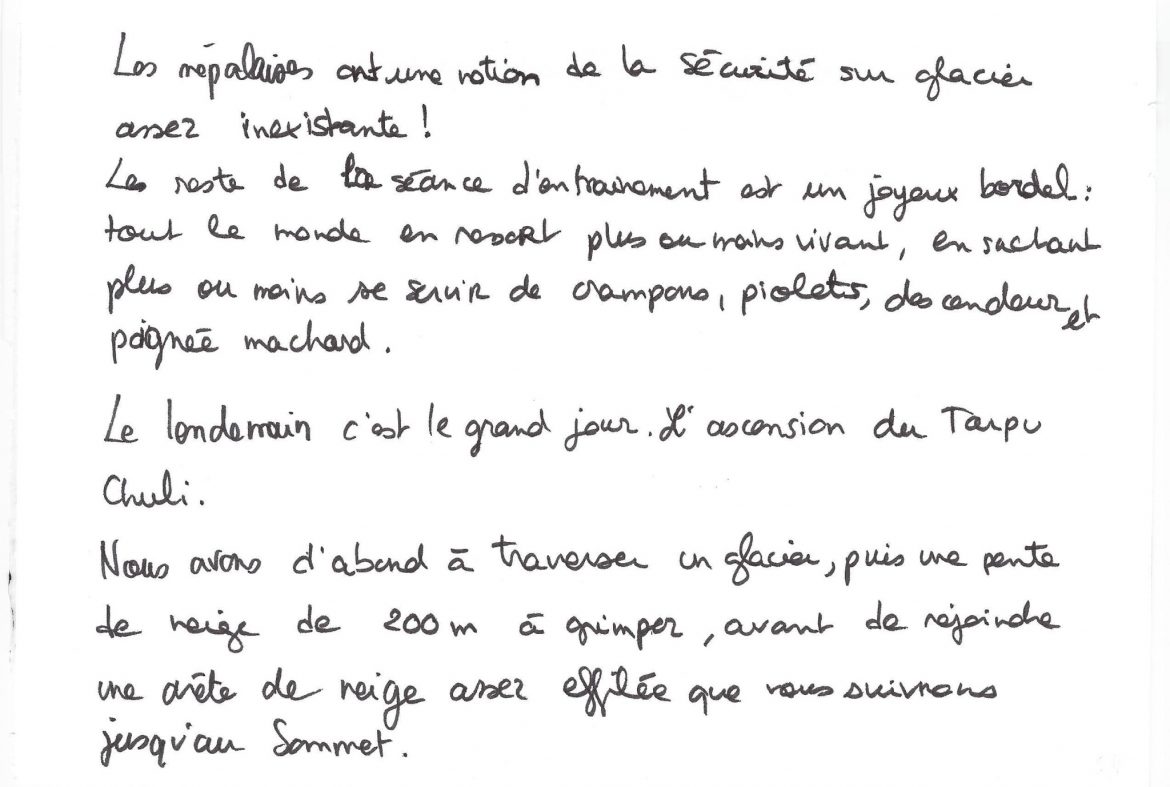 Les népalaises ont une notion de la sécurité sur glacier
assez inexistante !
Le reste de la séance d'entrainement est un joyeux bordel :
tout le monde en ressort plus ou moins vivant, en sachant
plus ou moins se servir de crampons, piolets, descendeur et
poignée machard.
Le lendemain c'est le grand jour. L'ascension du Tarpu
Chuli.
Nous avons d'abord à traverser un glacier, puis une pente
de neige de 200 m à grimper, avant de rejoindre
une arête de neige assez effilée que nous suivrons
jusqu'au Sommet.